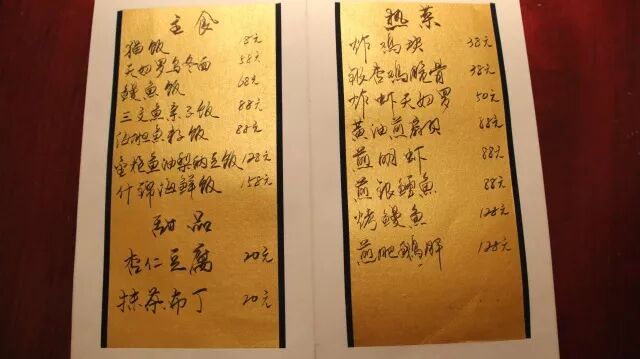 主食
猫饭 18元
天妇罗乌冬面 58元
鳗鱼饭 68元
三文鱼亲子饭 88元
海胆鱼籽饭 88元
金枪鱼油梨纳豆饭 128元
什锦海鲜饭 158元
甜品
杏仁豆腐 20元
抹茶布丁 20元
热菜
炸鸡块 38元
银杏鸡脆骨 38元
炸虾天妇罗 50元
黄油煎扇贝 68元
煎明虾 88元
煎银鳕鱼 88元
烤鳗鱼 128元
煎肥鹅肝 128元